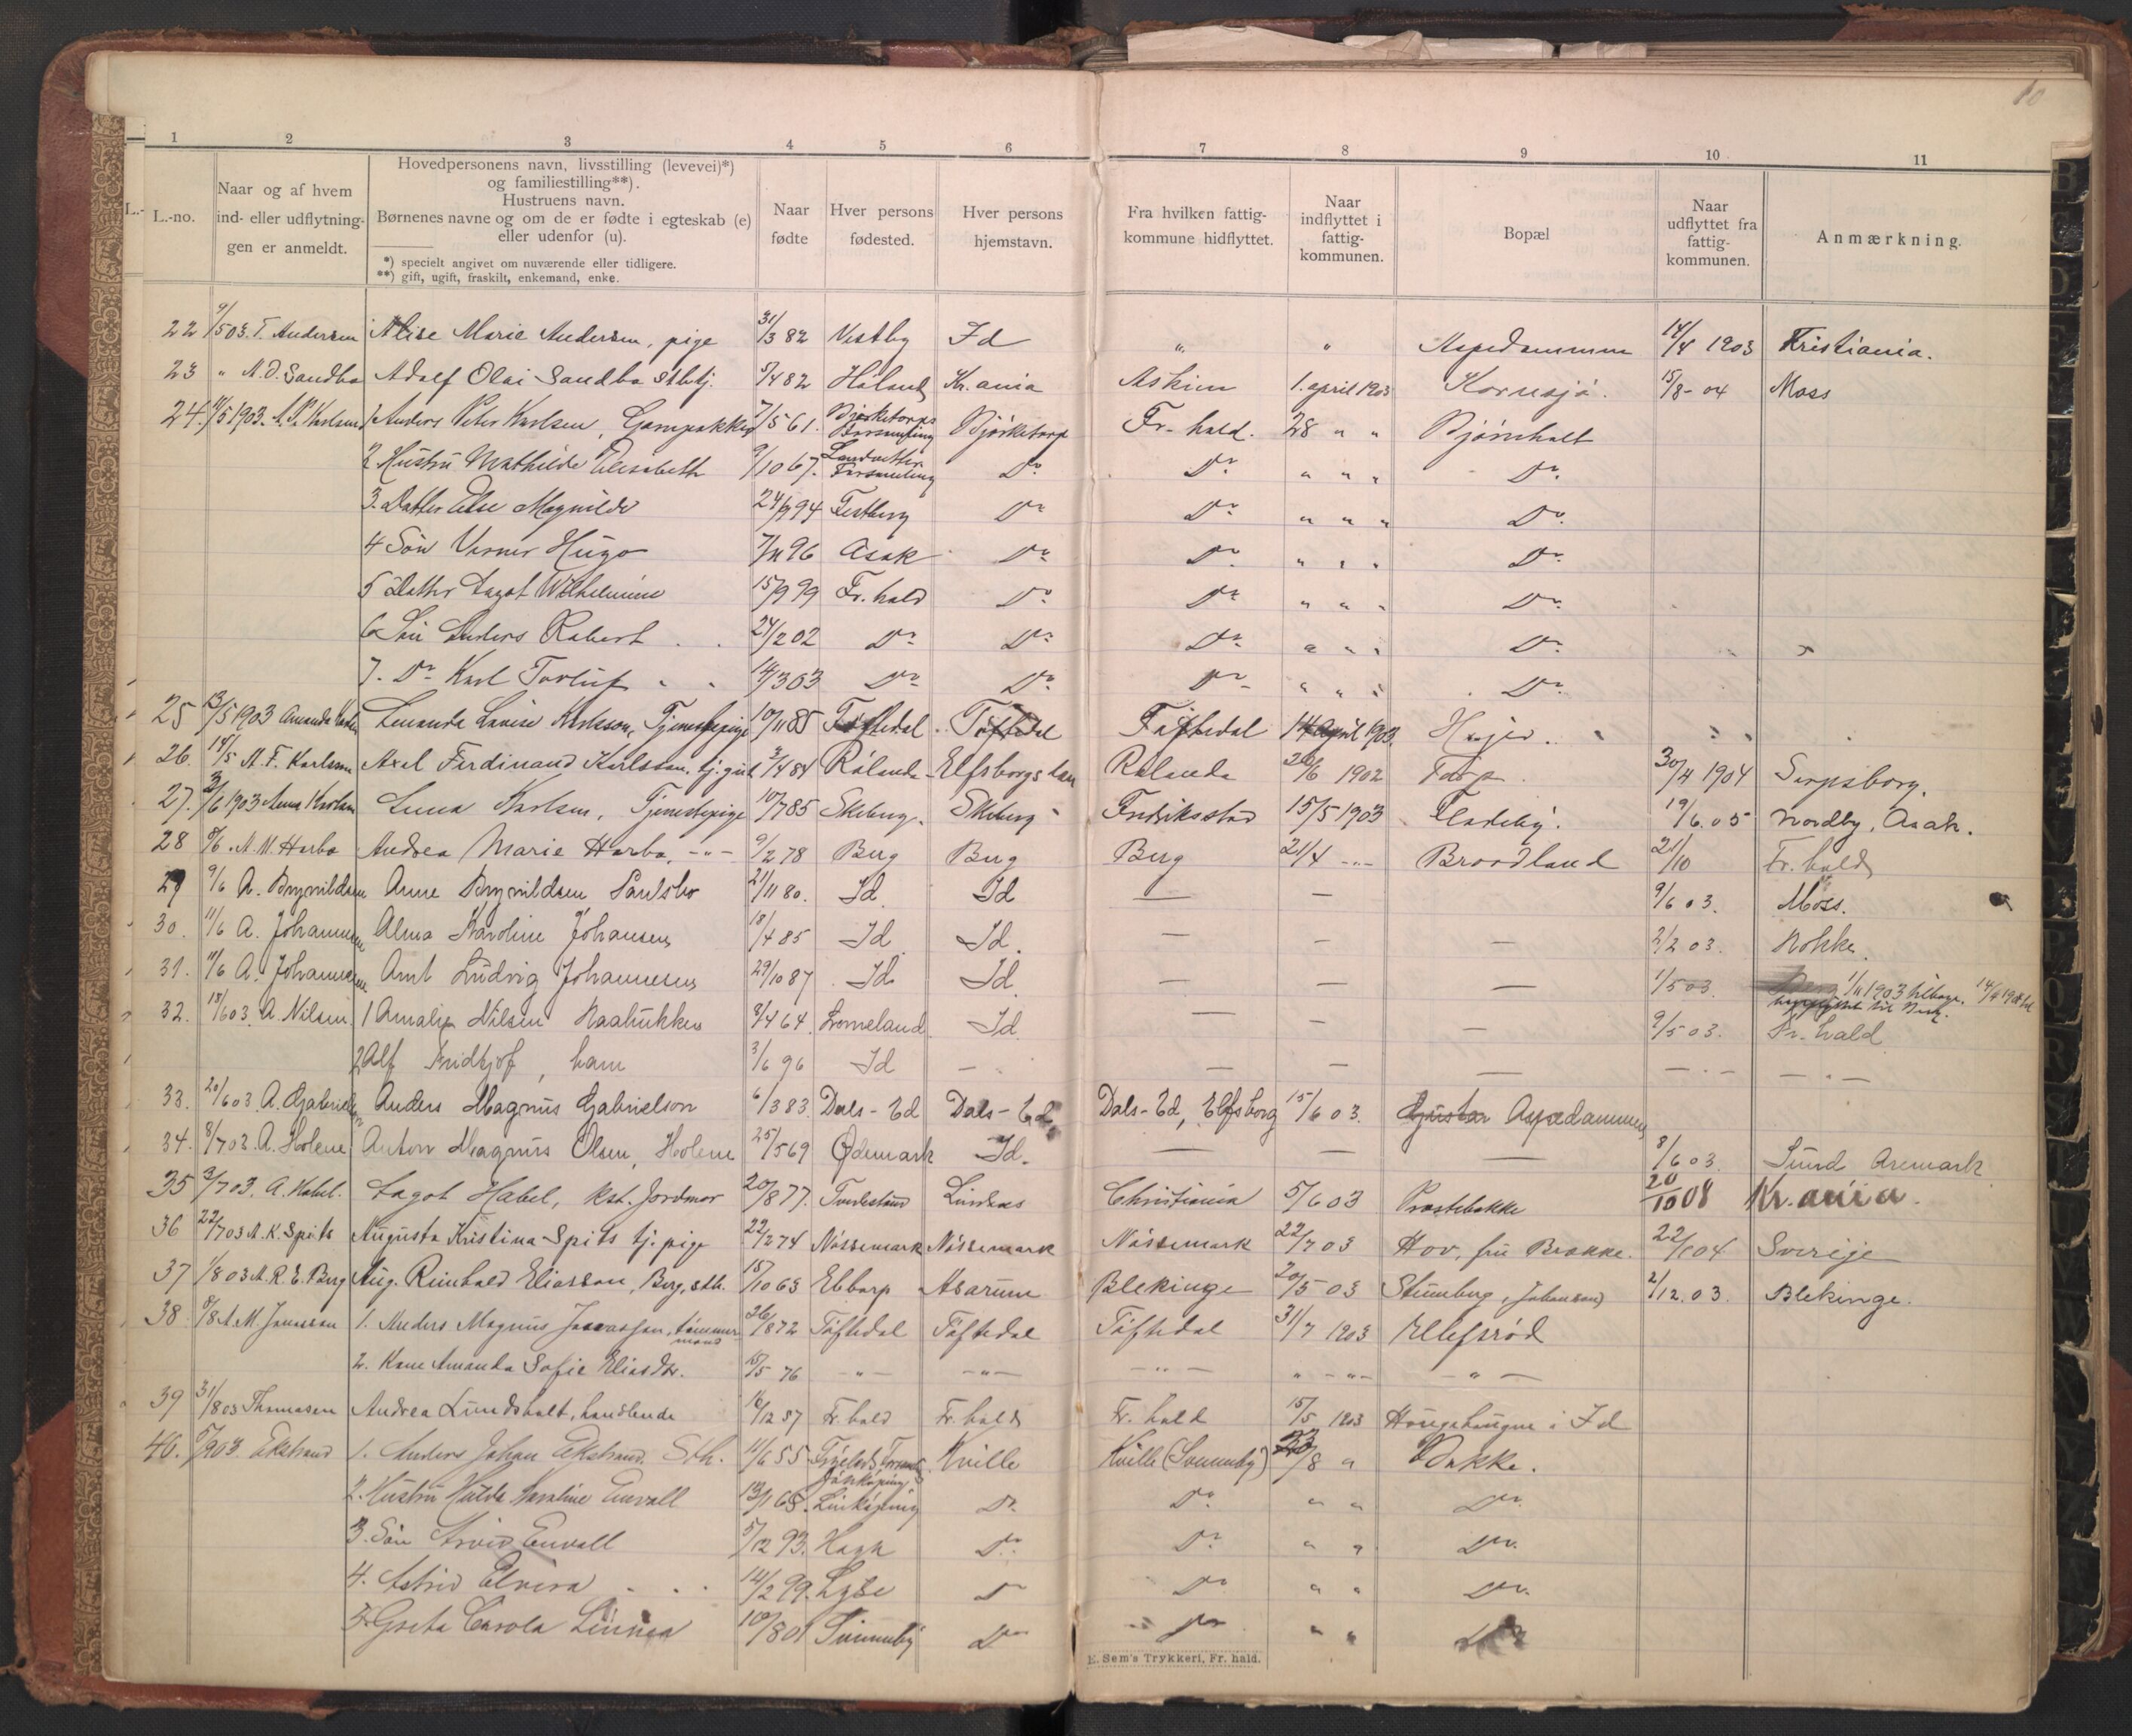 10
1 2 3 4 5 6 7 8 9 10 11
L.-
L.-no.
Naar og af hvem
ind- eller udflytnin-
gen er anmeldt.
Hovedpersonens navn, livsstilling (levevei)*)
og familiestilling**).
Hustruens navn.
Børnenes navne og om de er fødte i egteskab (e)
eller udenfor (u).
*) specielt angivet om nuværende eller tidligere.
**) gift, ugift, fraskilt, enkemand, enke.
Naar
fødte
Hver persons
fødested.
Hver persons
hjemstavn.
Fra hvilken fattig-
kommune hidflyttet.
Naar
indflyttet i
fattig-
kommunen.
Bopæl
Naar
udflyttet fra
fattig-
kommunen.
Anmærkning.
22 9/5 03. T. Andersen Alise Marie Andersen, pige 31/3 82 Vestby Id " " Aspedammen 14/4 1903 Kristiania.
23 " A.O. Sandbo Adolf Olai Sandbo stbtj. 9/4 82 Høland Kr.ania Askim 1. april 1903 Kornsjø. 15/8 - 04 Moss
24. 11/5 1903. A.P. Karlsen 1 Anders Peter Karlsen, 7/5 61. Bjørketorps Forsamling Bjørketorp Fr-hald. 28 " " Bjørnholt
2 Hustru Mathilde Elisabeth 9/10 67. Landvetter Forsamling Do Do " " " Do.
3. Datter Else Magnilde 24/9 94 Festberg Do Do " " " Do.
4 Søn Verner Hugo 7/11 96 Asak Do Do. " " " Do.
5 Datter Dagot Wilhelmine 15/9 99 Fr. hald Do Do " " " Do.
6 Søn Anders Robert 24/2 02 Do Do Do " " " Do.
7. Do Karl Torluf " " 14/3 03 Do Do. Do " " " Do.
25 13/5 1903 Amanda Louise Karlsson, Tjenestepige 10/11 85 Töftedal Töftedal Töftedal 14 April 1903.
26. 14/5 A. F. Karlsson Axel Ferdinand Karlsson, tj.gut 3/4 84 Rölanda Elfsborgs län Rölanda 26/6 1902 Torp. 30/4 1904 Sarpsborg.
27. 3/6 1903 Anna Karlsen Anna Karlsen, Tjenestepige 10/7 85 Skeberg. Skeberg Fredriksstad 15/5 1903 Fladeby. 19/6. 05 Nordby, Asak.
28 8/6. A. M. Harbo Andrea Marie Harbo, -"- 9/2 78 Berg Berg Berg 21/4 -"- Braadland 21/10 Fr. hald
29 9/6 A. Brynildsen Anne Brynildsen Paulsbo 21/11 80. Id. Id — — 9/6 03. Moss.
30. 11/6 A. Johannesen Alma Karoline Johansen 18/4 85 Id Id. — — — 2/2 03. Rokke.
31. 11/6 A. Johannesen Arnt Ludvig Johannesen 29/10 87 Id Id — — — 1/5 03. 1/11 1903 tilbage.
32. 18/6 03. A. Nilsen 1 Amalie Nilsen Raahukken 8/4 64. Lomeland Id — — — 9/5 03. Fr. hald
2 Alf Fridtjof, ham 3/6 96 Id — — — — — . — — . —
33. 20/6 03 A. Gabriels Anders Magnus Gabrielson 6/3 83. Dals-Ed Dals-Ed Dals-Ed, Elfsborg 15/6 03. Aspedammen
34. 8/7 03. A. Holene Anton Magnus Olsen, Holene 25/5 69 Ødemark Id. — — — 8/6 03. Sund Aremark
35 3/7 03. A. Habel. Dagot Habel, kst. Jordmor 20/8 77. Tvedestrand Lindaas Christiania 5/6 03 Prestebakke 20/10 08 Kr.ania.
36 22/7 03 A. K. Spits Augusta Kristina Spits tj. pige 22/2 74 Nössemark Nössemark Nössemark 22/7 03 Hov, fru Brække. 22/1 04 Sverige
37 1/8 03 A. R. E. Berg Aug. Reinhold Eliasson, Berg, sth. 15/10 63 Ebbarp Asarum Blekinge 20/5 03 Stumberg, Johanson 2/12. 03. Blekinge.
38 8/8 A. M. Jonasson 1. Anders Magnus Jonasson, tømmer mand 26/8 72 Töftedal Töftedal Töftedal 31/7 1903 Ellefsrød
2. Kone Amanda Sofie Eliasdr. 15/5 76 -"- -"- -"- " -"- -"-
39 31/8 03 Thomasen Andrea Lundsholt, handlende 16/12 57 Fr. hald Fr. hald Fr. hald 15/5 1903 i Id
40. 5/9 03 Ekstrand 1. Anders Johan Ekstrand. Sth. 11/6 55 Jönköping Kville Kville (Svenneby) 23/8 " Bakke.
2. Hustru Hulda Karoline Envall 13/1 65. Linköping Do. Do. " " Do.
3. Søn Arvid Envall 5/12 93. Hagn Do. Do " " Do.
4. Astrid Elvira " " 14/2 99. Lyse Do Do " " Do.
5. Greta Carola Linnea 10/8 01 Svenneby Do Do " "
E. Sem's Trykkeri, Fr. hald.